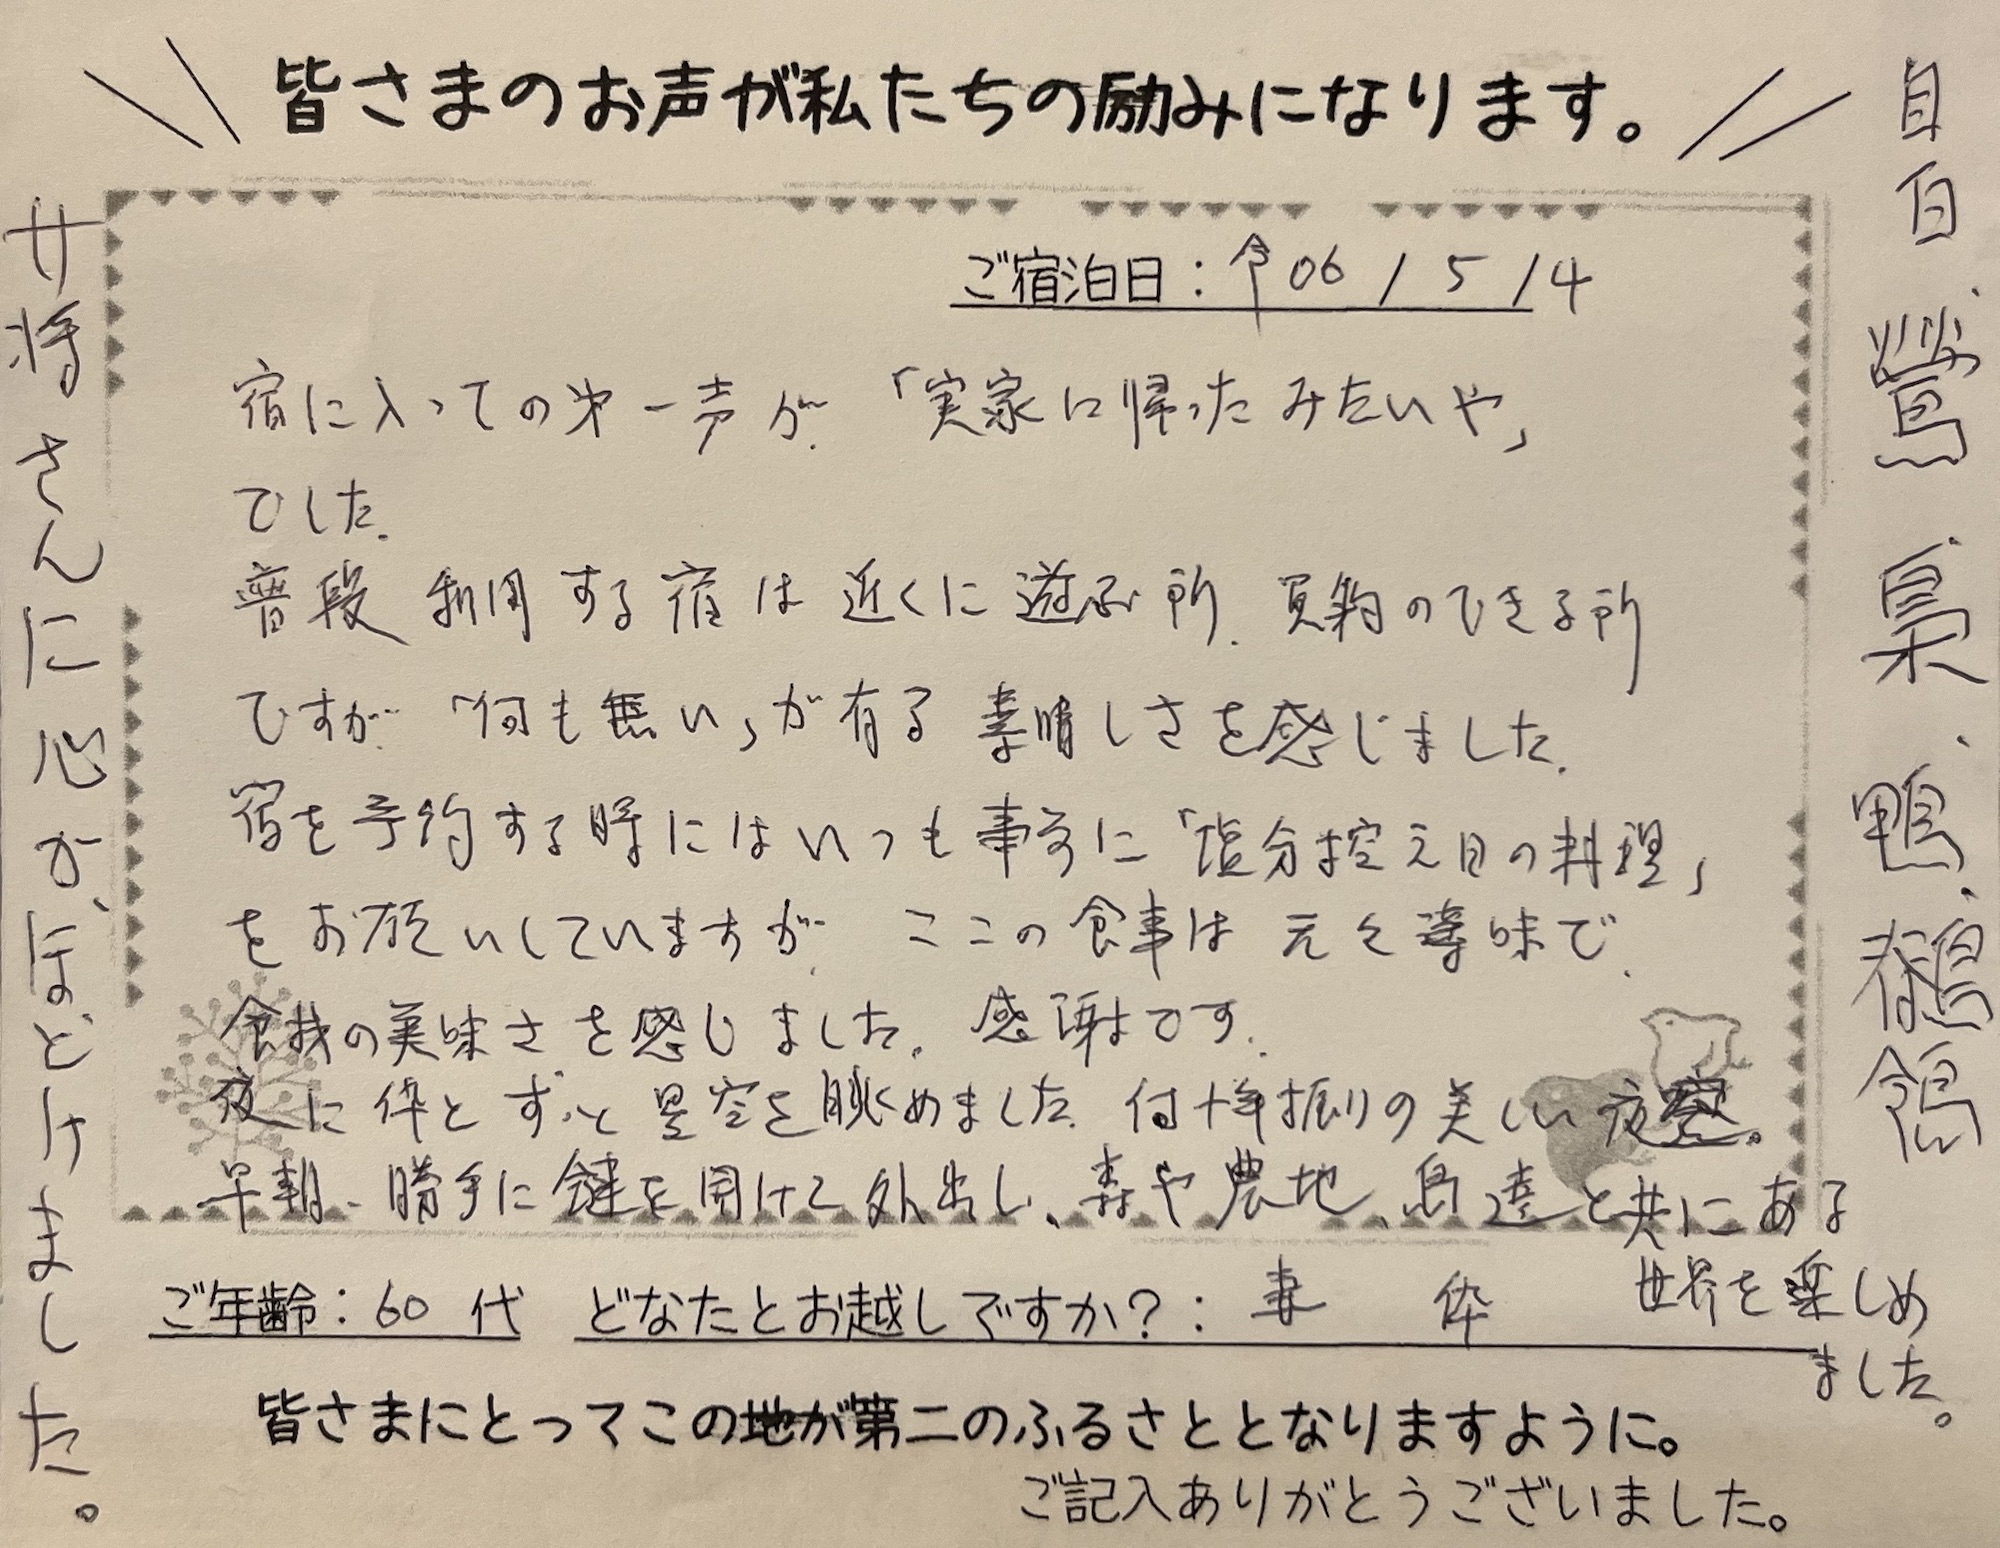 皆さまのお声が私たちの励みになります。
ご宿泊日：令06/5/14
宿に入っての第一声が、「実家に帰ったみたいや」
でした。
普段利用する宿は近くに遊ぶ所、買物のできる所
ですが、「何も無い」が有る素晴しさを感じました。
宿を予約する時にはいつも事前に「塩分控え目の料理」
をお願いしていますが、ここの食事は元々薄味で、
食材の美味さを感じました。感謝です。
夜に伜とずっと星空を眺めました。何十年振りの美しい夜空。
早朝、勝手に鍵を開けて外出し、森や農地、鳥達と共にある
世界を楽しめ
ました。
目白、鶯、梟、鴨、鶺鴒
女将さんに心がほどけました。
ご年齢：60代 どなたとお越しですか？：妻 伜
皆さまにとってこの地が第二のふるさととなりますように。
ご記入ありがとうございました。